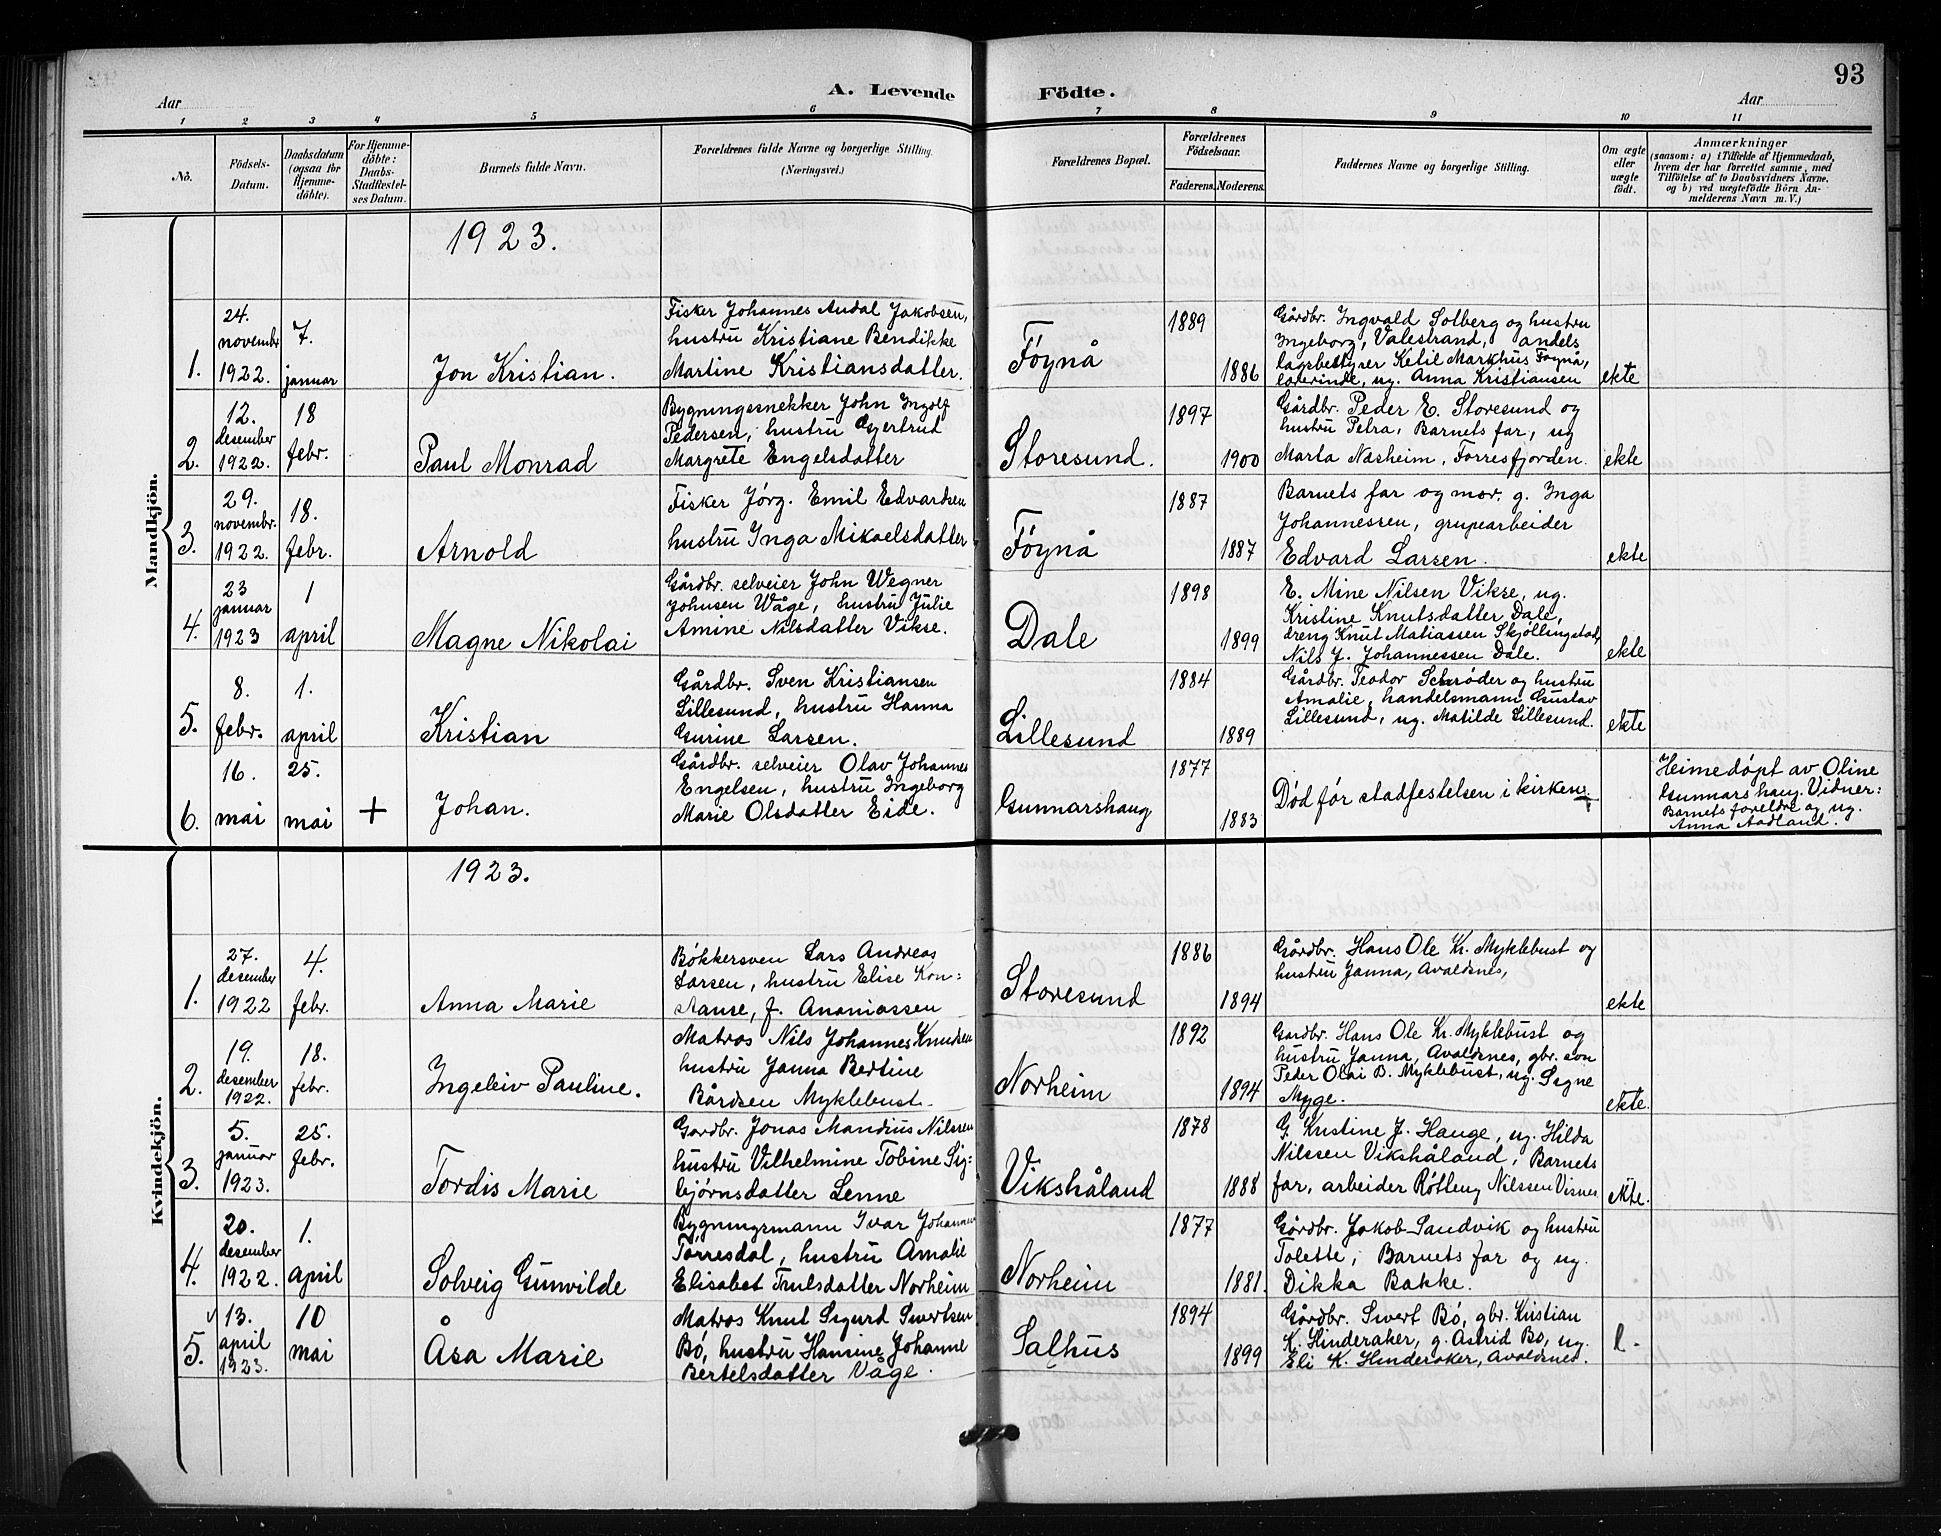 93
A. Levende Födte.
Aar
Aar
1 2 3 4 5 6 7 8 9 10 11
No.
Födsels-Datum.
Daabsdatum (ogsaa for Hjemmedöbte).
For Hjemmedöbte: Daabs-Stadfæstelses Datum.
Barnets fulde Navn.
Forældrenes fulde Navne og borgerlige Stilling. (Næringsvei.)
Forældrenes Bopæl.
Forældrenes Födselsaar.
Faderens. Moderens.
Faddernes Navne og borgerlige Stilling.
Om ægte eller uægte födt.
Anmærkninger
(saasom: a) i Tilfælde af Hjemmedaab,
hvem der har forrettet samme, med
Tilföielse af to Daabsvidners Navne,
og b) ved uægtefödte Börn Anmelderens Navn m. V.)
Mandkjön.
1923.
1.
24.
novembr
1922.
7.
januar
Jon Kristian.
Fisker Johannes Andal Jakobsen,
hustru Kristiane Bendikke
Martine Kristiansdatter.
Föynå
1889
1886
Gårdbr. Ingvald Solberg og hustru
Ingeborg, Valestrand, andels
lagsbestyrer Ketil Markhus Föynå,
ug. Anna Kristiansen
ekte
2.
12.
desember
1922.
18
febr.
Paul Monrad
Bygningssnekker John Ingolf
Pedersen, hustru Gjertrud
Margrete Engelsdatter
Storesund.
1897
1900
Gårdbr. Peder E. Storesund og
hustru Petra, Barnets far, ug
Marta Nasheim, Förresfjorden.
ekte
3.
29.
novembr.
1922.
18.
febr.
Arnold
Fisker Jörg. Emil Edvardsen
hustru Inga Mikaelsdatter
Föynå
1887
1887
Barnets far og mor. g. Inga
Johannessen, grupearbeider
Edvard Larsen.
ekte
4.
23
januar
1923
1
april
Magne Nikolai
Gårdbr. selveier John Wegner
Johnsen Våge, hustru Julie
Amine Nilsdatter Vikse.
Dale
1898
1899
E. Mine Nilsen Vikse, ug.
Kristine Knutsdatter Dale,
dreng Knut Matiassen Skjöllingstad,
Nils J. Johannessen Dale.
ekte
5.
8.
febr.
1.
april
Kristian
Gårdbr. Sven Kristiansen
Lillesund, hustru Hanna
Gurine Larsen.
Lillesund
1884
1889
Gårdbr. Teodor Schröder og hustru
Amalie, handelsmann Gustav
Lillesund, ug. Matilde Lillesund.
ekte
6.
16.
mai
25.
mai
+
Johan.
Gårdbr. selveier Olav Johannes
Engelsen, hustru Ingeborg
Marie Olsdatter Eide.
Gunnarshaug
1877
1883
Död för stadfestelsen i kirken +
Heimedöpt av Oline
Gunnarshaug. Vidner:
Barnets foreldre og ug.
Anna Aadland.
Kvindekjön.
1923.
1.
27.
desember
1922
4.
febr.
Anna Marie
Bökkersven Lars Andreas
Larsen, hustru Elise Kon=
stanse, f. Ananiassen
Storesund
1886
1894
Gårdbr. Hans Ole Kr. Myklebust og
hustru Janna, Avaldsnes,
ekte
2.
19.
desember
1922.
18.
febr.
Ingeleiv Pauline.
Matros Nils Johannes Knudsen
hustru Janna Bertine
Bårdsen Myklebust.
Norheim
1892
1894
Gardbr. Hans Ole Kr. Myklebust og
hustru Janna, Avaldsnes, gbr. sön
Peder Olai B. Myklebust, ug. Signe
Myge.
ekte.
3.
5.
januar
1923.
25.
febr.
Tordis Marie
Gardbr. Jonas Mandius Nilssen
hustru Vilhelmine Tobine Sig=
björnsdatter Lenne
Vikshåland
1878
1888
G. Kristine J. Hauge, ug. Hilda
Nilssen Vikshåland, Barnets
far, arbeider Nilssen Visnes
ekte.
4.
20.
desember
1922.
1.
april
Solveig Gunvilde
Bygningsmann Ivar Johannes
Törresdal, hustru Amalie
Elisabet Trulsdatter Norheim
Norheim
1877
1881.
Gårdbr. Jakob Sandvik og hustru
Tolette, Barnets far og ug.
Dikka Bakke.
5.
13.
april
1923.
10
mai
Åsa Marie
Matros Knut Sigurd Sivertsen
Bö, hustru Hansine Johanne
Bertelsdatter Våge.
Salhus
1894
1899
Gårdbr. Sivert Bö, gbr. Kristian
K. Hinderaker, g. Astrid Bö, ug.
Eli K. Hinderaker, Avaldsnes.